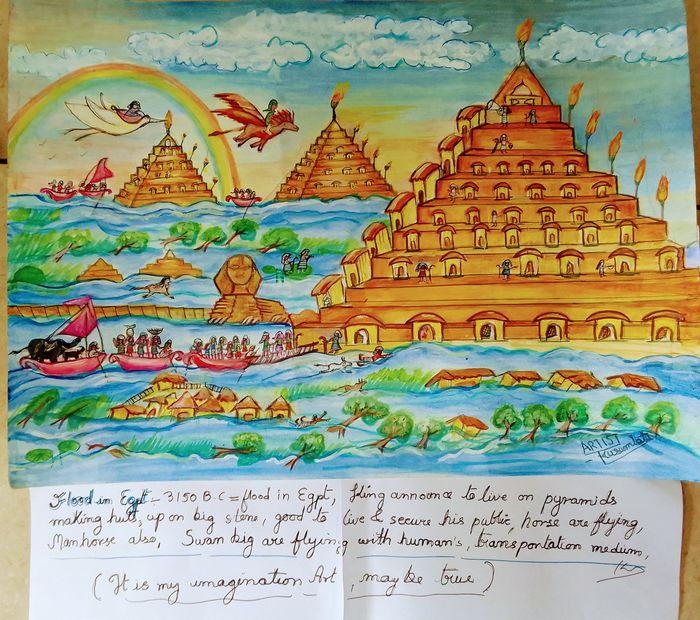 ARTIST
Kusumlata
Flood in Egpt - 3150 B.C = flood in Egpt, King announce to live on pyramids
making huts, up on big stone, good to live & secure his public, horse are flying,
Manhorse also, Swan big are flying with human's, transpontation medium,
( It is my imagination Art, may be true )